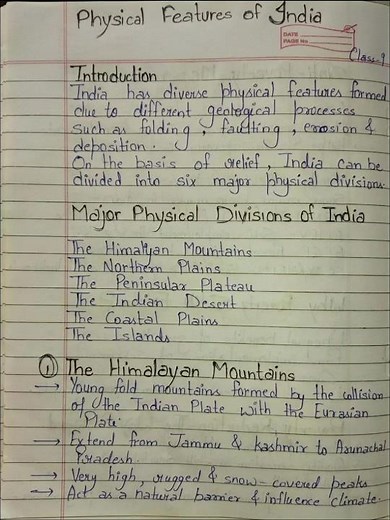 Physical Features of India
DATE
PAGE No.
Class-9
Introduction
India has diverse physical features formed
due to different geological processes
such as folding, faulting, erosion &
deposition.
On the basis of relief, India can be
divided into six major physical divisions.
Major Physical Divisions of India
The Himalyan Mountains
The Northern Plains
The Peninsular Plateau
The Indian Desert
The Coastal Plains
The Islands
① The Himalayan Mountains
→ Young fold mountains formed by the collision
of the Indian Plate with the Eurasian
Plate.
→ Extend from Jammu & Kashmir to Arunachal
Pradesh.
→ Very high, rugged & snow-covered peaks
→ Act as a natural barrier & influence climate.